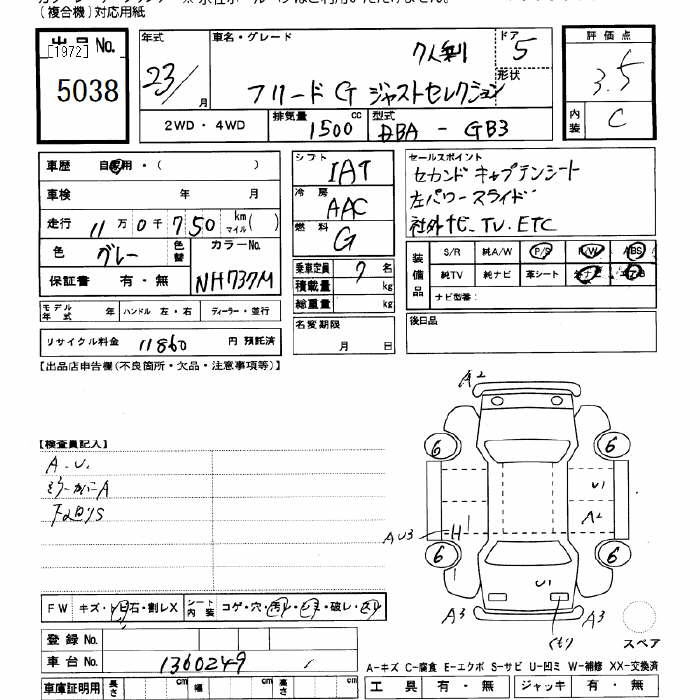 (複合機)対応用紙
出品No.
[1972]
5038
年式
23/
月
車名・グレード
7人乗り
フリード G ジャストセレクション
ドア 5
形状
評価点
3.5
内装 C
2WD・4WD
排気量 1500 cc
型式 DBA - GB3
車歴 自家用・( )
車検 年 月
走行 11万0千750 km マイル( )
色 グレー 色替
カラーNo. NH737M
保証書 有・無
モデル年式 年 ハンドル 左・右 ディーラー・並行
リサイクル料金 11860 円 預託済
シフト IAT
冷房 AAC
燃料 G
乗車定員 7 名
積載量 kg
総重量 kg
名変期限
月 日
セールスポイント
セカンドキャプテンシート
左パワースライド
社外ナビ、TV、ETC
装備品
S/R 純A/W P/S P/W ABS
純TV 純ナビ 革シート
ナビ型番:
後日品
【出品店申告欄(不良箇所・欠品・注意事項等)】
【検査員記入】
A.U.
A2
6
6
U1
A2
AU3
H
6
6
U1
A3
A3
くもり
スペア
FW キズ・トビ石・割レX
シート内装 コゲ・穴・汚レ・シミ・破レ・スリ
登録No.
車台No. 1360249
車庫証明用 長さ cm 幅 cm 高さ cm
A-キズ C-腐食 E-エクボ S-サビ U-凹ミ W-補修 XX-交換済
工具 有・無 ジャッキ 有・無